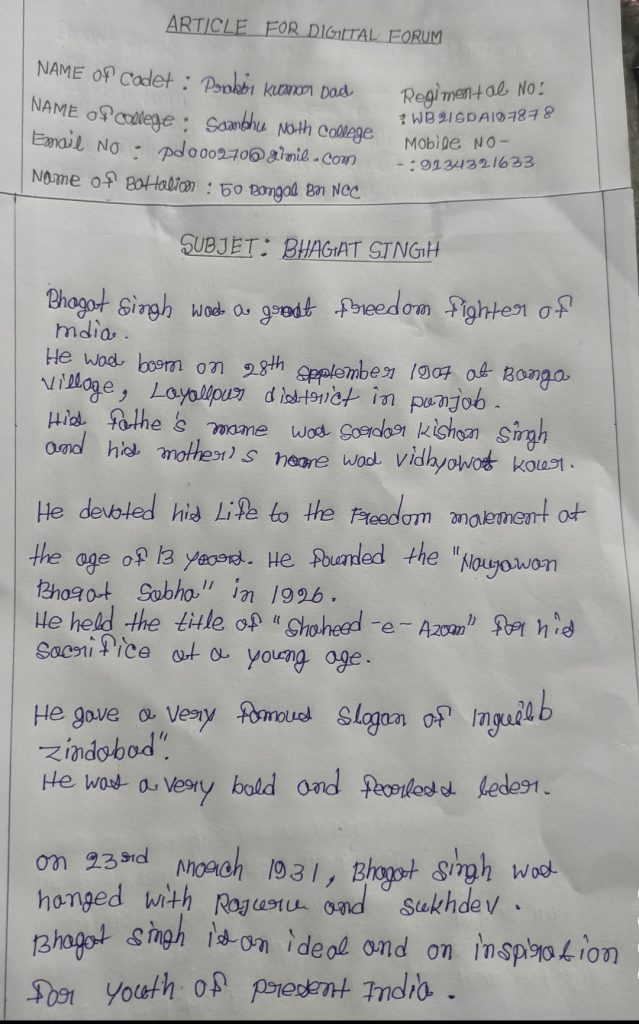 ARTICLE FOR DIGITAL FORUM
NAME of Cadet : Prabir Kumar Dad
Regimental No :
NAME of college : Sambhu Nath College
: WB21SDA107878
Email No : pd000270@gimil.com
Mobile NO -
- : 9134321633
Name of Battalion : 50 Bangal Bn NCC
SUBJET : BHAGAT SINGH
Bhagat Singh was a great freedom fighter of
India.
He was born on 28th september 1907 at Banga
village, Layallpur district in punjab.
His fathe's name was Sardar Kishan Singh
and his mother's name was vidhyawat kaur.
He devoted his Life to the Freedom movement at
the age of 13 years. He founded the "Naujawan
Bharat Sabha" in 1926.
He held the title of "Shaheed-e-Azam" for his
sacrifice at a young age.
He gave a very famous slogan of Inquilb
zindabad".
He was a very bold and fearless leder.
on 23rd March 1931, Bhagat Singh was
hanged with Rajguru and sukhdev.
Bhagat singh is an ideal and an inspiration
for youth of present India.